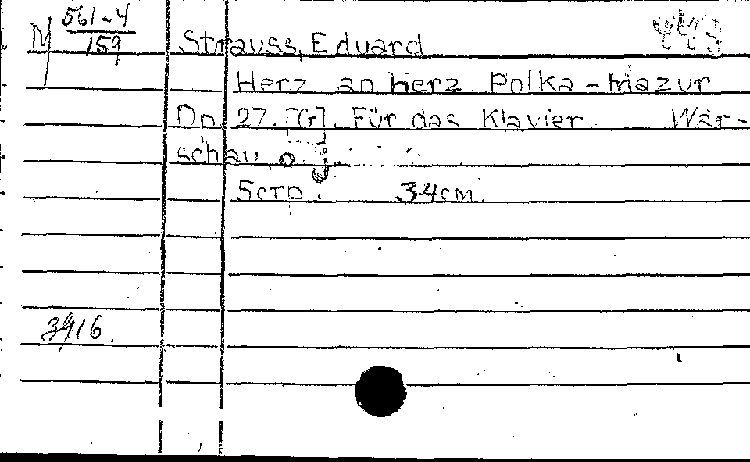 М 561-4
159
Strauss, Eduard
Herz an herz Polka-Mazur
Op 27. [G]. Für das Klavier. War-
schau o. J.
5 стр. 34 см.
3916